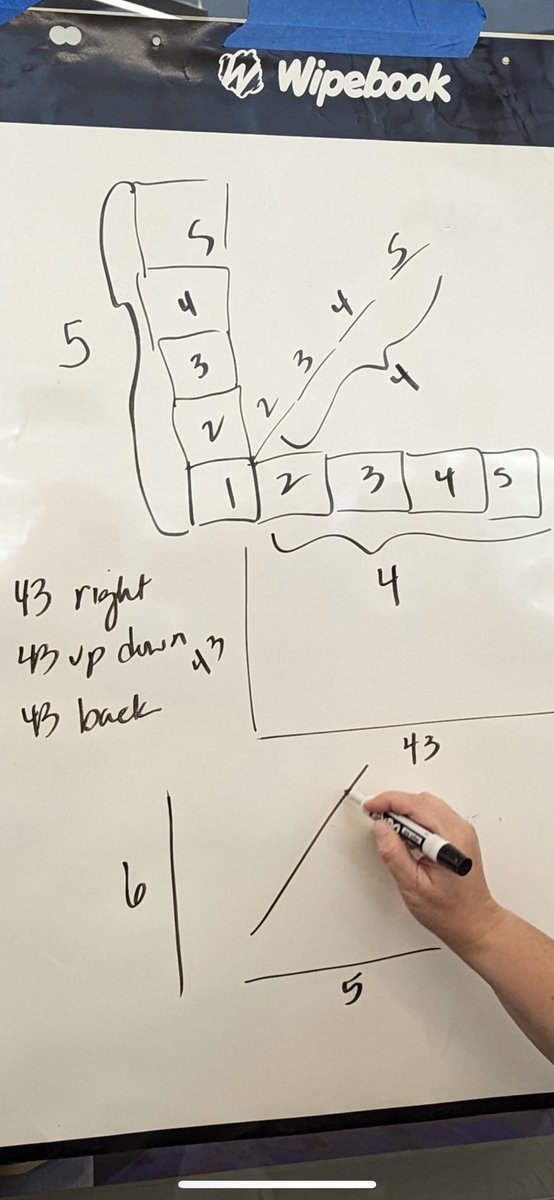 Wipebook
5
5
4
3
2
1 2 3 4 5
2 3 4 5
4
4
43 right
43 up down
43 back
43
43
6
5